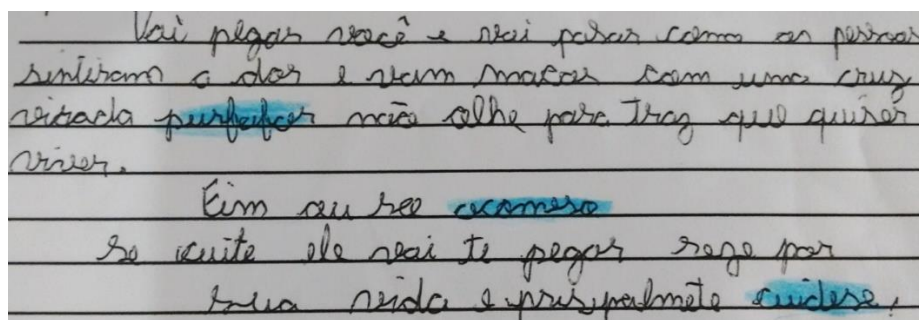 Vai pegar você e vai parar como as pessoas
sintiram a dor e vam matar com uma cruz
virada não olhe para traz que quiser
viver.
Eim ou seo acomeso
se cuite ele vai te pegar reze por
sua vida e prisipalmete cuidese,